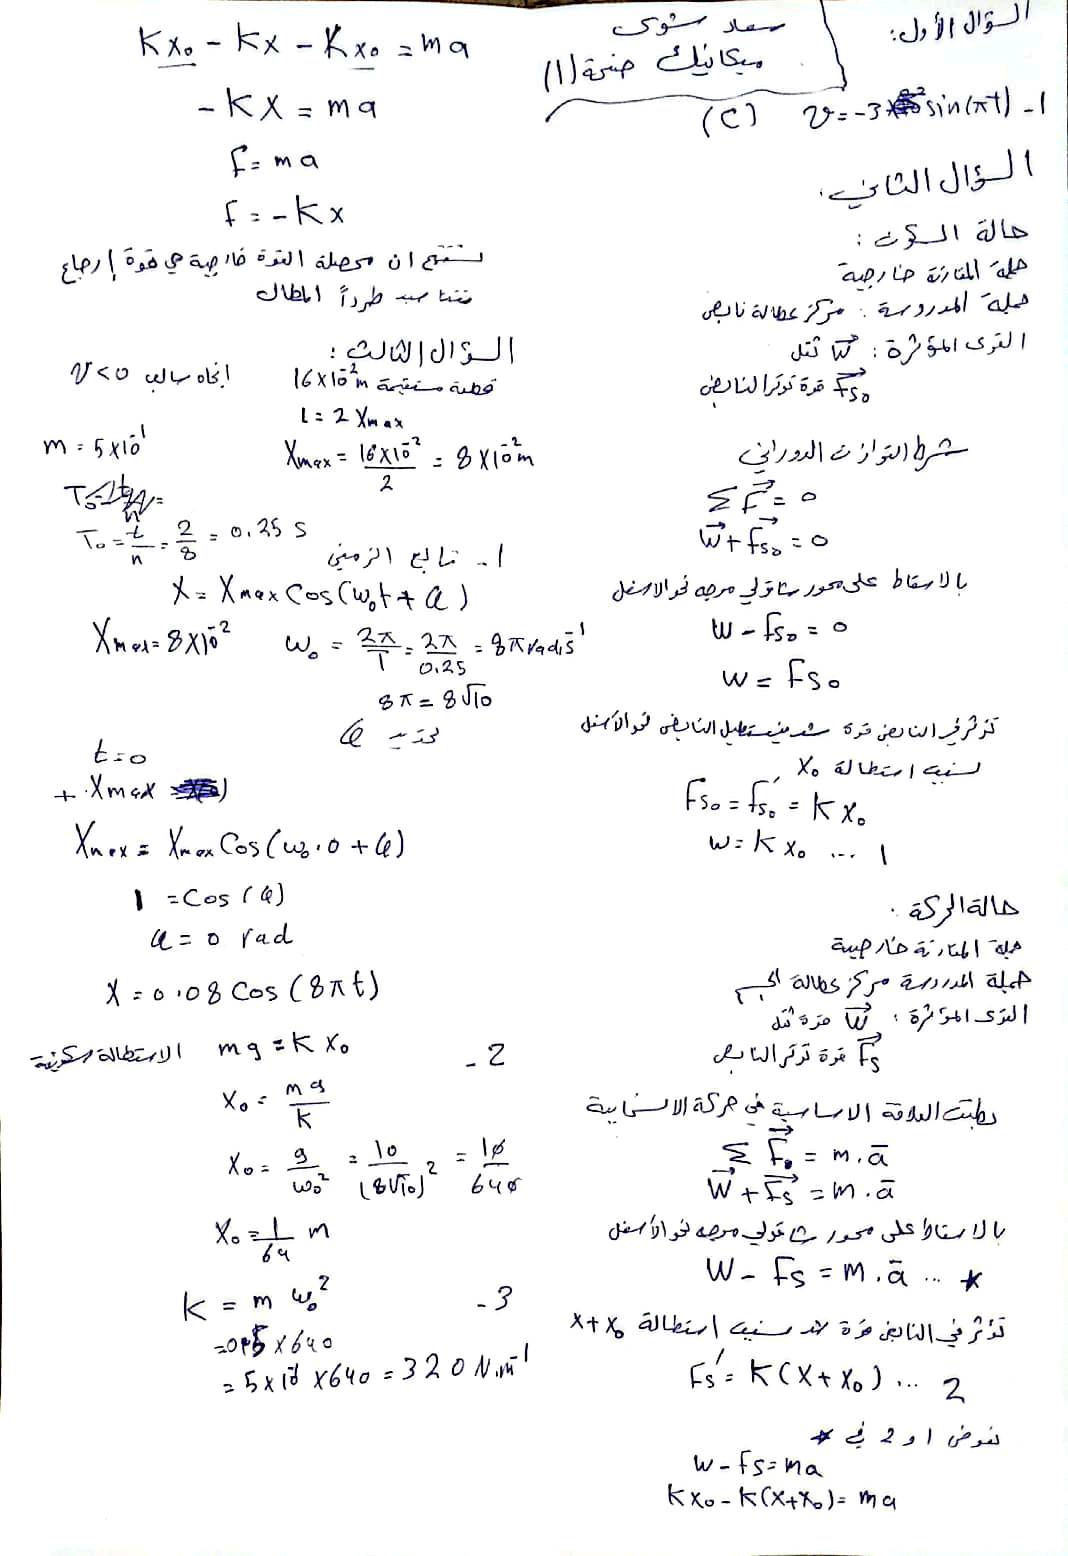 السؤال الأول:
سعاد سنوي
ميكانيك هندسة (1)
1- v = -3 sin(πt) (C)
السؤال الثاني:
حالة السكون:
جملة المقارنة خارجية
جملة المدروسة: مركز عطالة نابض
القوى المؤثرة: W ثقل
Fs₀ قوة توتر النابض
شرط التوازن الدوراني
Σ F = 0
W + Fs₀ = 0
بالاسقاط على محور شاقولي موجه نحو الاسفل
W - Fs₀ = 0
W = Fs₀
تؤثر في النابض قوة شد فيستطيل النابض نحو الأسفل
تسبب استطالة x₀
Fs₀ = Fs₀' = K x₀
W = K x₀ ... 1
حالة الحركة.
جملة المقارنة خارجية
جملة المدروسة مركز عطالة الجسم
القوى المؤثرة: W قوة ثقل
Fs قوة توتر النابض
بطبق العلاقة الاساسية في حركة الانسحابية
Σ F = m.a
W + Fs = m.a
بالاسقاط على محور شاقولي موجه نحو الأسفل
W - Fs = m.a ... *
تؤثر في النابض قوة شد تسبب استطالة x+x₀
Fs' = K(x + x₀) ... 2
نعوض 1 و 2 في *
W - Fs = ma
Kx₀ - K(x+x₀) = ma
Kx₀ - Kx - Kx₀ = ma
-Kx = ma
F = ma
F = -Kx
نستنتج ان محصلة القوة خارجية هي قوة إرجاع
تتناسب طرداً المطال
السؤال الثالث:
قطعة مستقيمة 16×10⁻²m اتجاه سالب v<0
L = 2 Xmax
m = 5×10⁻¹ Xmax = 16×10⁻²/2 = 8×10⁻²m
T₀ = t/n = 2/8 = 0.25 s
1- تابع الزمني
X = Xmax Cos(ω₀t + φ)
Xmax = 8×10⁻² ω₀ = 2π/T = 2π/0.25 = 8π rad.s⁻¹
8π = 8√10
تحديد φ
t = 0
+Xmax
Xmax = Xmax Cos(ω₀.0 + φ)
1 = Cos(φ)
φ = 0 rad
X = 0.08 Cos(8πt)
2- mg = K x₀ الاستطالة سكونية
x₀ = mg/K
x₀ = g/ω₀² = 10/(8√10)² = 10/640
x₀ = 1/64 m
3- K = m ω₀²
=0.5×640
= 5×10⁻¹×640 = 320 N.m⁻¹